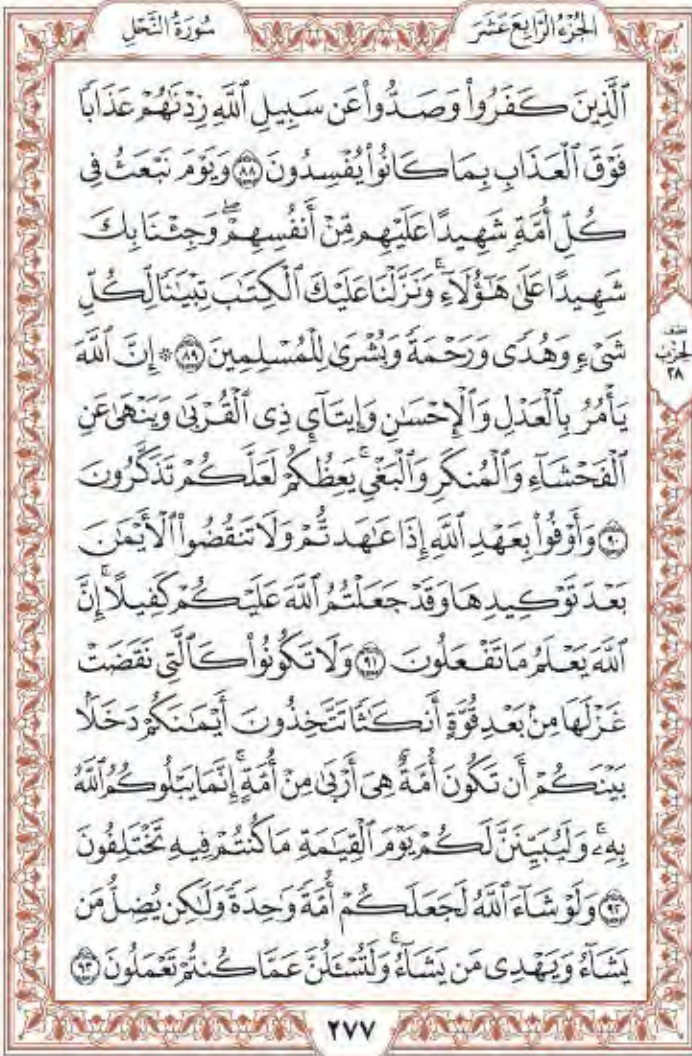 الجُزْءُ الرَّابِعَ عَشَرَ
سُورَةُ النَّحْلِ
ٱلَّذِينَ كَفَرُوا۟ وَصَدُّوا۟ عَن سَبِيلِ ٱللَّهِ زِدْنَٰهُمْ عَذَابًا
فَوْقَ ٱلْعَذَابِ بِمَا كَانُوا۟ يُفْسِدُونَ ٨٨ وَيَوْمَ نَبْعَثُ فِى
كُلِّ أُمَّةٍ شَهِيدًا عَلَيْهِم مِّنْ أَنفُسِهِمْ ۖ وَجِئْنَا بِكَ
شَهِيدًا عَلَىٰ هَٰٓؤُلَآءِ ۚ وَنَزَّلْنَا عَلَيْكَ ٱلْكِتَٰبَ تِبْيَٰنًا لِّكُلِّ
شَىْءٍ وَهُدًى وَرَحْمَةً وَبُشْرَىٰ لِلْمُسْلِمِينَ ٨٩ ۞ إِنَّ ٱللَّهَ
يَأْمُرُ بِٱلْعَدْلِ وَٱلْإِحْسَٰنِ وَإِيتَآئِ ذِى ٱلْقُرْبَىٰ وَيَنْهَىٰ عَنِ
ٱلْفَحْشَآءِ وَٱلْمُنكَرِ وَٱلْبَغْىِ ۚ يَعِظُكُمْ لَعَلَّكُمْ تَذَكَّرُونَ
٩٠ وَأَوْفُوا۟ بِعَهْدِ ٱللَّهِ إِذَا عَٰهَدتُّمْ وَلَا تَنقُضُوا۟ ٱلْأَيْمَٰنَ
بَعْدَ تَوْكِيدِهَا وَقَدْ جَعَلْتُمُ ٱللَّهَ عَلَيْكُمْ كَفِيلًا ۚ إِنَّ
ٱللَّهَ يَعْلَمُ مَا تَفْعَلُونَ ٩١ وَلَا تَكُونُوا۟ كَٱلَّتِى نَقَضَتْ
غَزْلَهَا مِنۢ بَعْدِ قُوَّةٍ أَنكَٰثًا تَتَّخِذُونَ أَيْمَٰنَكُمْ دَخَلًۢا
بَيْنَكُمْ أَن تَكُونَ أُمَّةٌ هِىَ أَرْبَىٰ مِنْ أُمَّةٍ ۚ إِنَّمَا يَبْلُوكُمُ ٱللَّهُ
بِهِۦ ۚ وَلَيُبَيِّنَنَّ لَكُمْ يَوْمَ ٱلْقِيَٰمَةِ مَا كُنتُمْ فِيهِ تَخْتَلِفُونَ
٩٢ وَلَوْ شَآءَ ٱللَّهُ لَجَعَلَكُمْ أُمَّةً وَٰحِدَةً وَلَٰكِن يُضِلُّ مَن
يَشَآءُ وَيَهْدِى مَن يَشَآءُ ۚ وَلَتُسْـَٔلُنَّ عَمَّا كُنتُمْ تَعْمَلُونَ ٩٣
نصف
الحزب
٢٨
٢٧٧